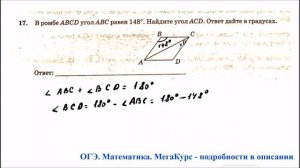 17. В ромбе ABCD угол ABC равен 148°. Найдите угол ACD. Ответ дайте в градусах.
B
C
148°
A
D
Ответ:
∠ABC + ∠BCD = 180°
∠BCD = 180° - ∠ABC = 180° - 148°
ОГЭ. Математика. МегаКурс - подробности в описании